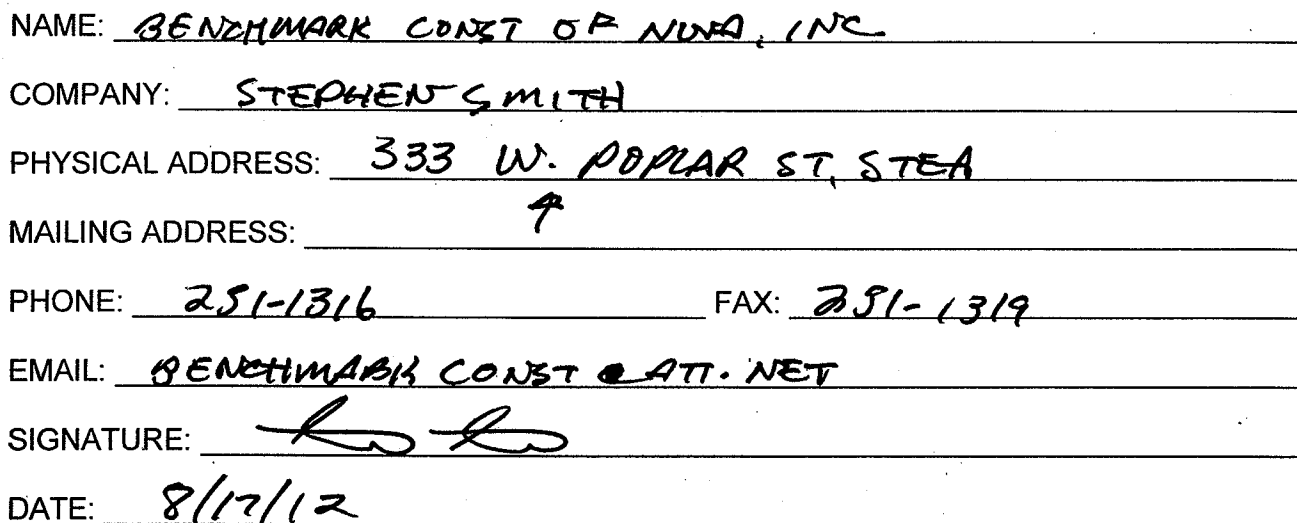 NAME: BENCHMARK CONST OF NWA, INC
COMPANY: STEPHEN SMITH
PHYSICAL ADDRESS: 333 W. POPLAR ST, STE A
MAILING ADDRESS:
PHONE: 251-1316 FAX: 251-1319
EMAIL: BENCHMARK CONST @ ATT. NET
SIGNATURE:
DATE: 8/17/12